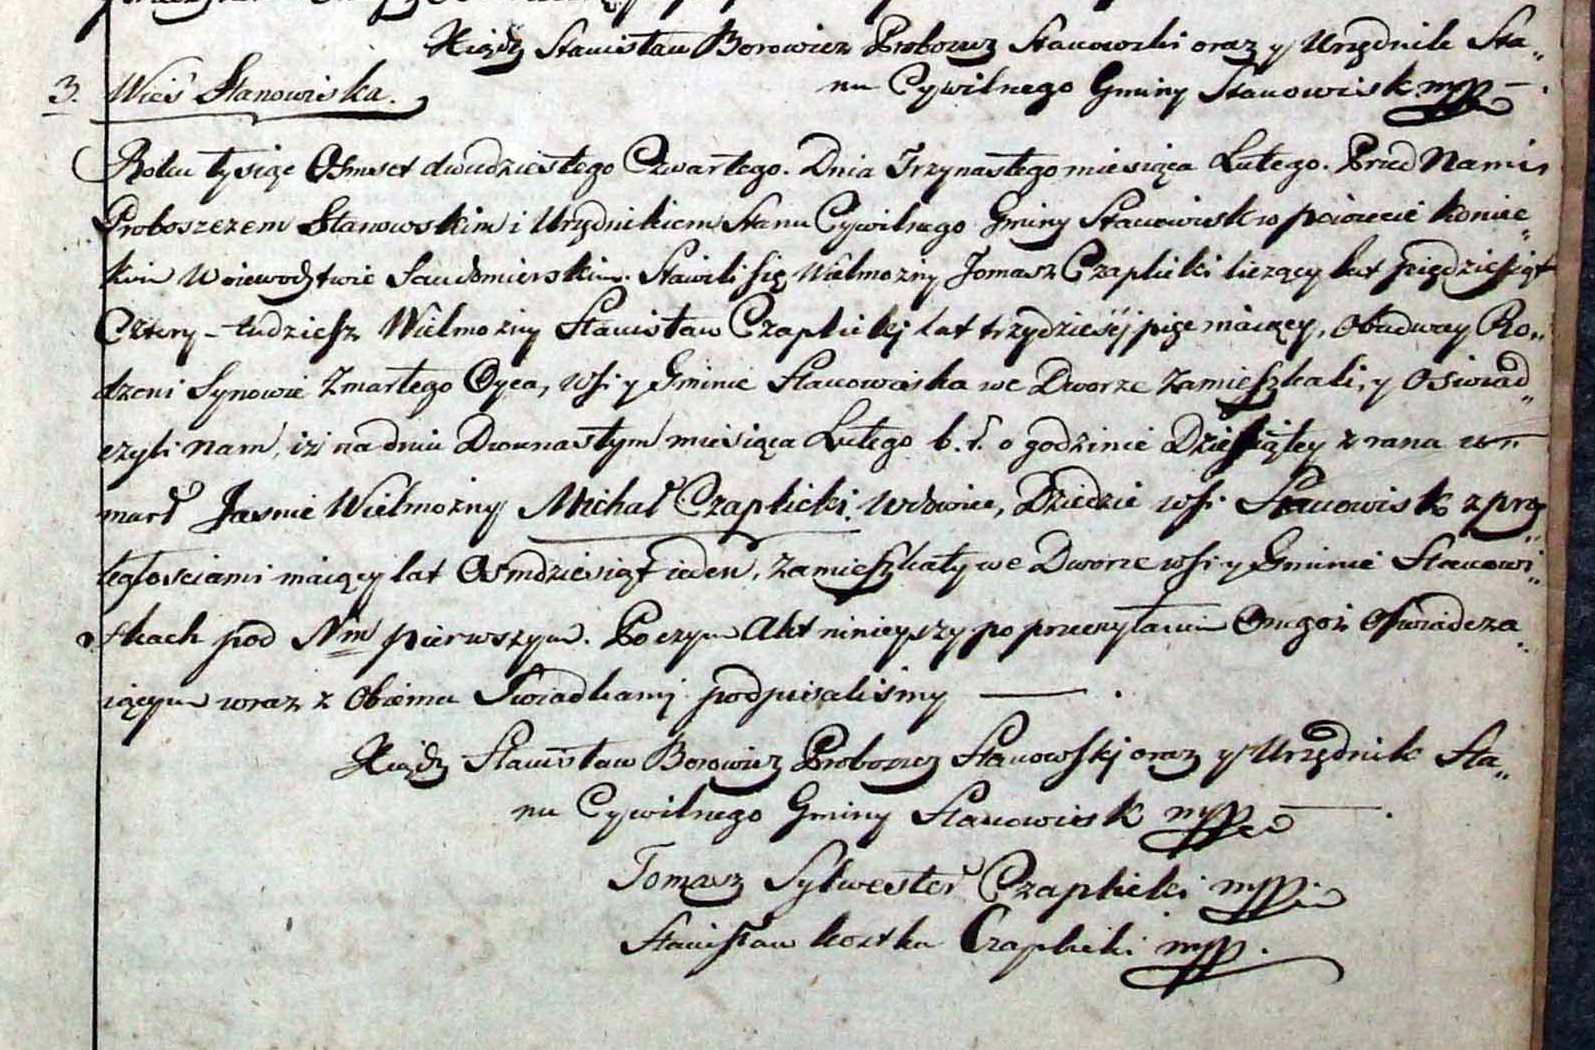 Xiądz Stanisław Borowicz Proboszcz Stanowski oraz y Urzędnik Sta„
3. Wieś Stanowiska. nu Cywilnego Gminy Stanowisk mpp
Roku tysiąc Osmset dwudziestego Czwartego. Dnia Trzynastego miesiąca Lutego. Przed Nami
Proboszczem Stanowskim i Urzędnikiem Stanu Cywilnego Gminy Stanowisk w powiecie Koniec„
kim Woiewodztwie Sandomierskim. Stawili się Wielmożny Tomasz Czaplicki liczący lat pięćdziesiąt
Cztery – tudziesz Wielmożny Stanisław Czaplickj lat trzydzieścj pięc maiący, Obadway Ro„
dzeni Synowie Zmarłego Oyca, wsi y Gminie Stanowiska we Dworze Zamieszkali, y Oswiad„
czyli Nam, iż na dniu Dwunastym miesiąca Lutego b. r. o godzinie Dziesiątey z rana um
marł Jasnie Wielmożny Michał Czaplicki Wdowiec, Dziedzic wsi Stanowisk z przy„
ległosciami maiący lat Osmdziesiąt ieden, Zamieszkały we Dworze wsi y Gminie Stanowi„
skach pod Nm pierwszym. Po czym Akt ninieyszy po przeczytaniu Onegoż Oswiadcza„
iącym wraz z Obiema Swiadkamj podpisaliśmy —
Xiądz Stanisław Borowicz Proboszcz Stanowskj oraz y Urzędnik Sta„
nu Cywilnego Gminy Stanowisk mpp
Tomasz Sylwester Czaplicki mpp
Stanisław kostka Czaplicki mpp.